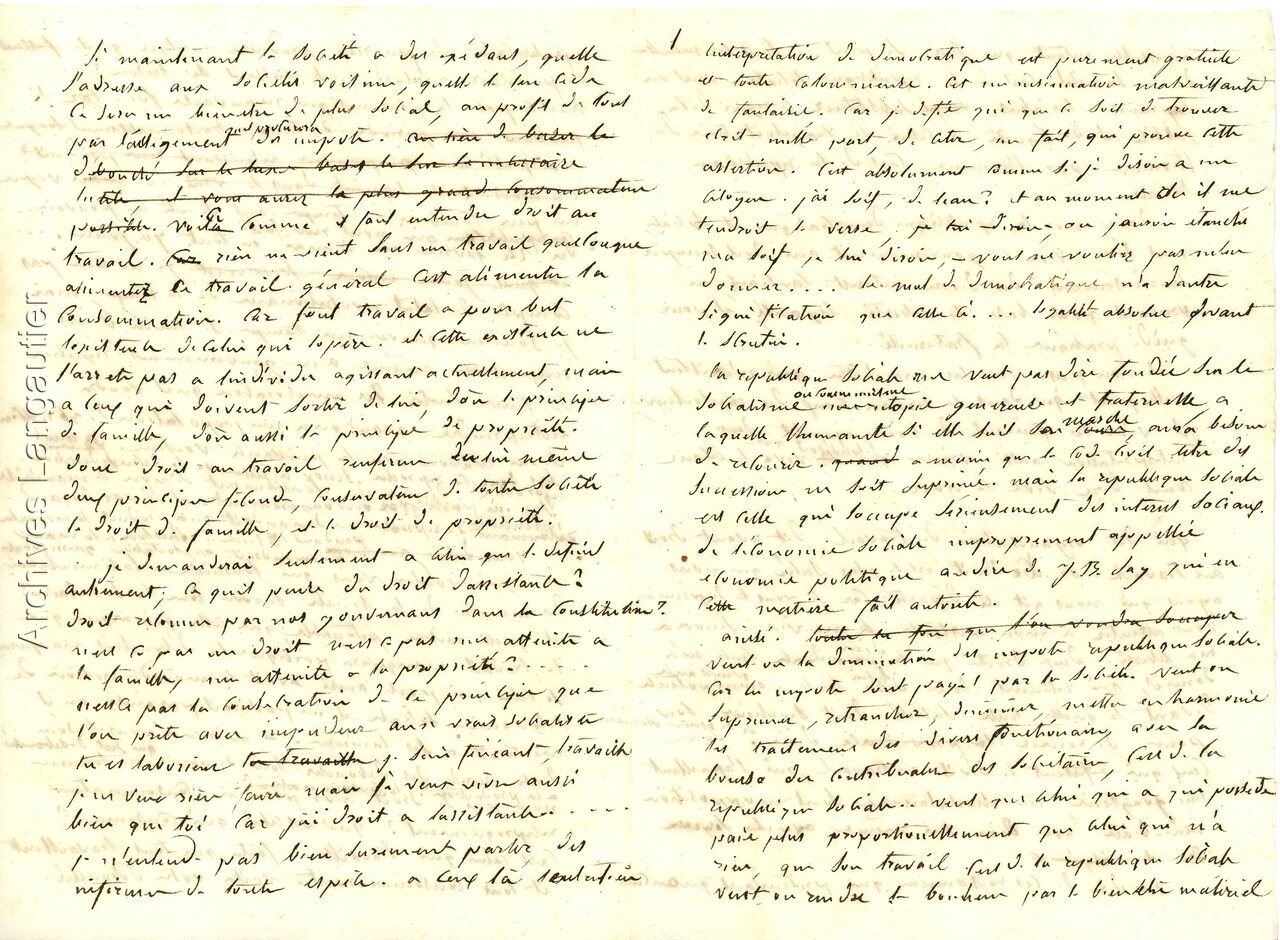 Si maintenant la société a des excédants, quelle
s'adresse aux sociétés voisines, quelle
ce sera un bienetre de plus social, au profit de tous
par l'allègement que procurera des impots. au lieu de baser le
sur le luxe basez le sur le necessaire
et vous aurez le plus grand consommateur
possible. voila comme il faut entendre droit au
travail. Car rien ne vient sans un travail quelconque
alimentez le travail général cest alimenter la
consommation. Car tout travail a pour but
lexistence de celui qui lopère. et cette existence ne
s'arrete pas a lindividu agissant actuellement, mais
a ceux qui doivent sortir de lui, doù le principe
de famille, doù aussi le principe de propriété.
donc droit au travail renferme en lui même
deux principes féconds, conservateurs de toute société
le droit de famille, et le droit de propriété.
je demanderai seulement a celui qui le définit
autrement, ce quil pense du droit dassistance?
droit reconnu par nos gouvernants dans la Constitution?
nest ce pas un droit nest ce pas une atteinte a
la famille, une atteinte a la propriété? . . . . .
nest ce pas la consécration de ce principe que
l'on prête avec impudeur aux vrais socialistes
tu es laborieux tu travailles je suis fainéant, travaille
je ne veux rien faire mais je veux vivre aussi
bien que toi car jai droit a lassistance. . . .
je n'entends pas bien surement parler des
infirmes de toute espèce. a ceux là
1
linterprétation de démocratique est purement gratuite
et toute calomnieuse. cest une insinuation malveillante
de fantaisie. Car je défie qui que ce soit de trouver
écrit nulle part, de citer, un fait, qui prouve cette
assertion. Cest absolument comme si je disais a un
citoyen. jai soif, de leau? et au moment ou il me
tendrait le verse, je lui dirais, ou jaurais étanché
ma soif je lui dirais, – vous ne vouliez pas men
donner. . . . le mot de démocratique n'a dautre
signification que celle ci. . . . légalité absolue devant
le scrutin.
la republique sociale ne veut pas dire fondée sur le
socialisme ou communisme utopie genereuse et fraternelle a
laquelle lhumanité si elle suit sa cours marche aura besoin
de recourir. quand a moins que le Code Civil, titre des
successions ne soit suprimé. mais la republique sociale
est celle qui soccupe serieusement des interets sociaux.
de l'économie sociale improprement appellée
economie politique au dire de J. B. Say qui en
cette matière fait autorité.
ainsi. toute la fois que l'on voudra soccuper
veut on la diminution des impots republique sociale.
Car les impots sont payés par la société. veut on
suprimer, retrancher, diminuer, mettre en harmonie
les traitements des divers fonctionnaires avec la
bourse des contribuables des sociétaires, cest de la
republique sociale. . veut que celui qui a qui possede
paie plus proportionellement que celui qui n'a
rien, que son travail cest de la republique sociale
veut on rendre le bonheur par le bienetre matériel
Archives Langautier